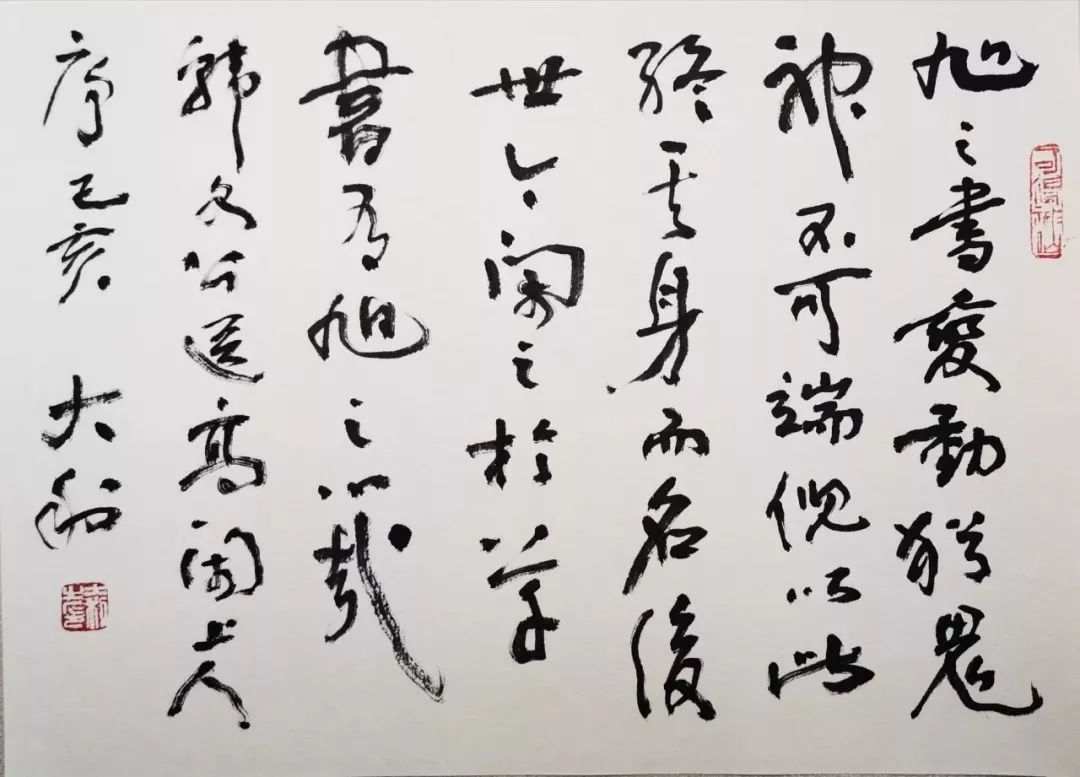 旭之書變動猶鬼
神不可端倪以此
終其身而名後
世今閑之於草
書有旭之心哉
韓文公送高閑上人
序己亥 大